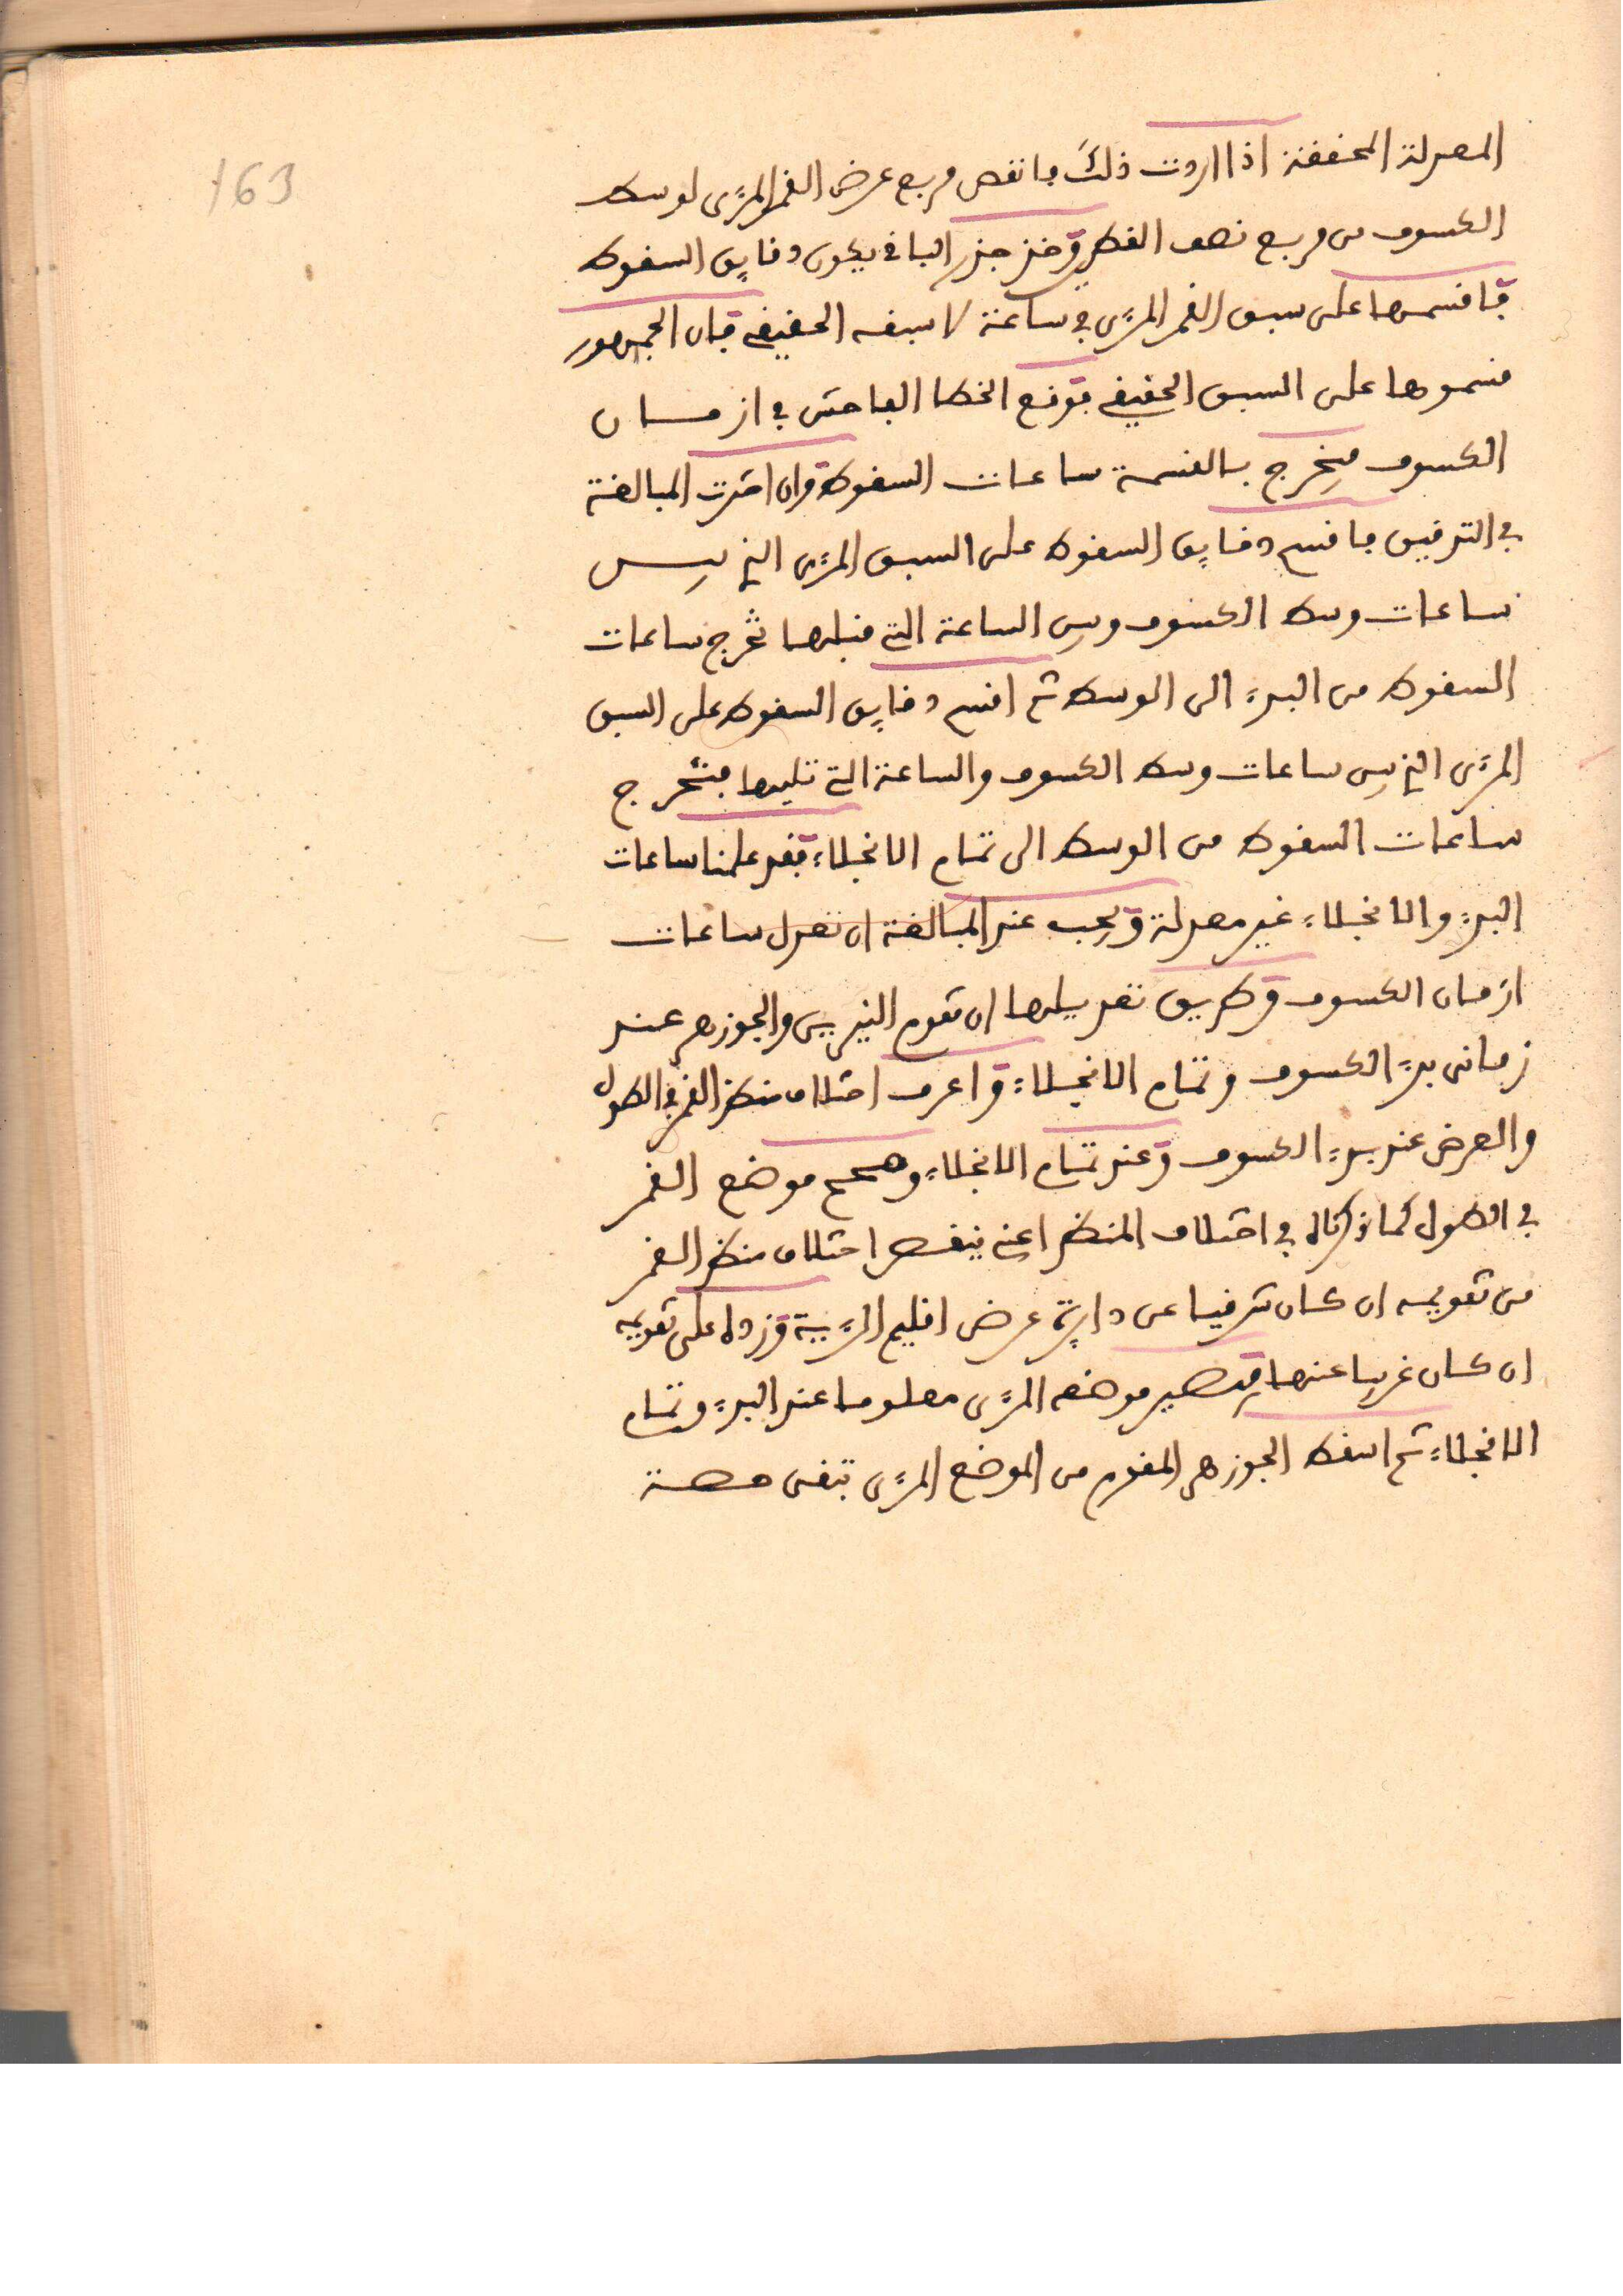 163
المعدلة المحققة اذا اردت ذلك فانقص مربع عرض القمر المرءى لوسط
الكسوف من مربع نصف القطرين وخذ جذر الباقى يكون دقايق السقوط
فاقسمها على سبق القمر المرءى في ساعة لا سبقه الحقيقي فان الجمهور
قسموها على السبق الحقيقي فوقع الخطا الفاحش في ازمان
الكسوف فيخرج بالقسمة ساعات السقوط وان اخترت المبالغة
في التدقيق فاقسم دقايق السقوط على السبق المرءى الذي بين
ساعات وسط الكسوف وبين الساعة التي قبلها تخرج ساعات
السقوط من البدء الى الوسط ثم اقسم دقايق السقوط على السبق
المرءى الذي بين ساعات وسط الكسوف والساعة التي تليها فتخرج
ساعات السقوط من الوسط الى تمام الانجلاء فقد علمنا ساعات
البدء والانجلاء غير معدلة ويجب عند المبالغة ان تعدل ساعات
ازمان الكسوف وطريق تعديلها ان تقوم النيرين والجوزهر عند
زمانى بدء الكسوف وتمام الانجلاء واعرف اختلاف منظر القمر في الطول
والعرض عند بدء الكسوف وعند تمام الانجلاء وصحح موضع القمر
في الطول كما ذكرنا في اختلاف المنظر اعني ينقص اختلاف منظر القمر
من تقويمه ان كان شرقيا عن دايرة عرض اقليم الرءية وزده على تقويمه
ان كان غربيا عنها فيصير موضعه المرءى معلوما عند البدء وتمام
الانجلاء ثم اسقط الجوزهر المقوم من الموضع المرءى تبقى حصة